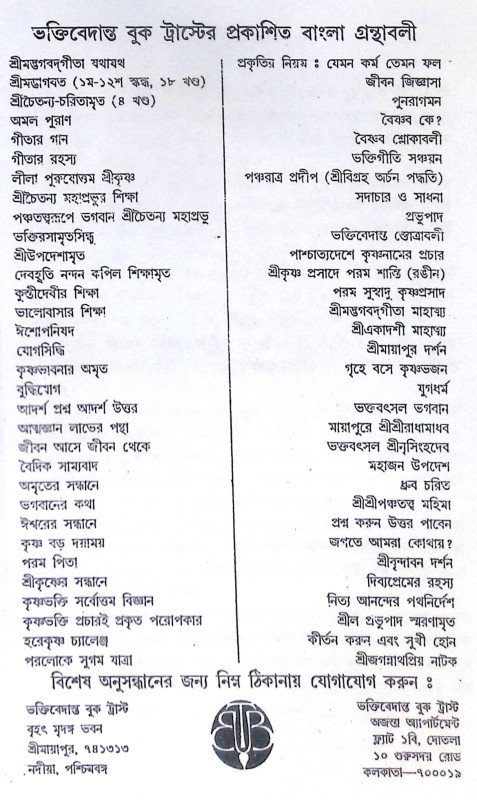 ভক্তিবেদান্ত বুক ট্রাস্টের প্রকাশিত বাংলা গ্রন্থাবলী
শ্রীমদ্ভগবদ্গীতা যথাযথ
শ্রীমদ্ভাগবত (১ম-১২শ স্কন্ধ, ১৮ খণ্ড)
শ্রীচৈতন্য-চরিতামৃত (৪ খণ্ড)
অমল পুরাণ
গীতার গান
গীতার রহস্য
লীলা পুরুষোত্তম শ্রীকৃষ্ণ
শ্রীচৈতন্য মহাপ্রভুর শিক্ষা
পঞ্চতত্ত্বরূপে ভগবান শ্রীচৈতন্য মহাপ্রভু
ভক্তিরসামৃতসিন্ধু
শ্রীউপদেশামৃত
দেবহূতি নন্দন কপিল শিক্ষামৃত
কুন্তীদেবীর শিক্ষা
ভালোবাসার শিক্ষা
ঈশোপনিষদ
যোগসিদ্ধি
কৃষ্ণভাবনার অমৃত
বুদ্ধিযোগ
আদর্শ প্রশ্ন আদর্শ উত্তর
আত্মজ্ঞান লাভের পন্থা
জীবন আসে জীবন থেকে
বৈদিক সাম্যবাদ
অমৃতের সন্ধানে
ভগবানের কথা
ঈশ্বরের সন্ধানে
কৃষ্ণ বড় দয়াময়
পরম পিতা
শ্রীকৃষ্ণের সন্ধানে
কৃষ্ণভক্তি সর্বোত্তম বিজ্ঞান
কৃষ্ণভক্তি প্রচারই প্রকৃত পরোপকার
হরেকৃষ্ণ চ্যালেঞ্জ
পরলোকে সুগম যাত্রা
প্রকৃতির নিয়ম : যেমন কর্ম তেমন ফল
জীবন জিজ্ঞাসা
পুনরাগমন
বৈষ্ণব কে?
বৈষ্ণব শ্লোকাবলী
ভক্তিগীতি সঞ্চয়ন
পঞ্চরাত্র প্রদীপ (শ্রীবিগ্রহ অর্চন পদ্ধতি)
সদাচার ও সাধনা
প্রভুপাদ
ভক্তিবেদান্ত স্তোত্রাবলী
পাশ্চাত্যদেশে কৃষ্ণনামের প্রচার
শ্রীকৃষ্ণ প্রসাদে পরম শান্তি (রঙীন)
পরম সুস্বাদু কৃষ্ণপ্রসাদ
শ্রীমদ্ভগবদ্গীতা মাহাত্ম্য
শ্রীএকাদশী মাহাত্ম্য
শ্রীমায়াপুর দর্শন
গৃহে বসে কৃষ্ণভজন
যুগধর্ম
ভক্তবৎসল ভগবান
মায়াপুরে শ্রীশ্রীরাধামাধব
ভক্তবৎসল শ্রীনৃসিংহদেব
মহাজন উপদেশ
ধ্রুব চরিত
শ্রীশ্রীপঞ্চতত্ত্ব মহিমা
প্রশ্ন করুন উত্তর পাবেন
জগতে আমরা কোথায়?
শ্রীবৃন্দাবন দর্শন
দিব্যপ্রেমের রহস্য
নিত্য আনন্দের পথনির্দেশ
শ্রীল প্রভুপাদ স্মরণামৃত
কীর্তন করুন এবং সুখী হোন
শ্রীজগন্নাথপ্রিয় নাটক
বিশেষ অনুসন্ধানের জন্য নিম্ন ঠিকানায় যোগাযোগ করুন :
ভক্তিবেদান্ত বুক ট্রাস্ট
বৃহৎ মৃদঙ্গ ভবন
শ্রীমায়াপুর, ৭৪১৩১৩
নদীয়া, পশ্চিমবঙ্গ
ভক্তিবেদান্ত বুক ট্রাস্ট
অজন্তা অ্যাপার্টমেন্ট
ফ্ল্যাট ১বি, দোতলা
১০ গুরুসদয় রোড
কলকাতা—৭০০০১৯